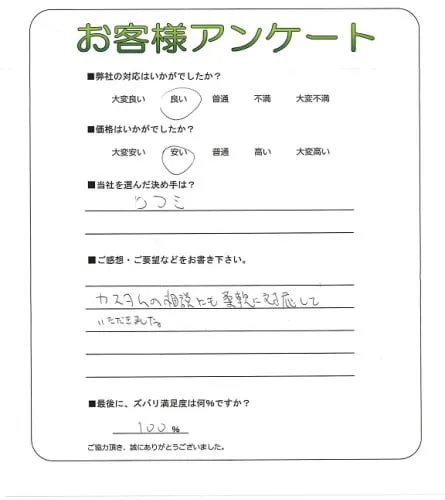 お客様アンケート
■弊社の対応はいかがでしたか?
大変良い 良い 普通 不満 大変不満
■価格はいかがでしたか?
大変安い 安い 普通 高い 大変高い
■当社を選んだ決め手は?
クコミ
■ご感想・ご要望などをお書き下さい。
カスタムの相談にも柔軟に対応して
いただきました。
■最後に、ズバリ満足度は何%ですか?
100 %
ご協力頂き、誠にありがとうございました。